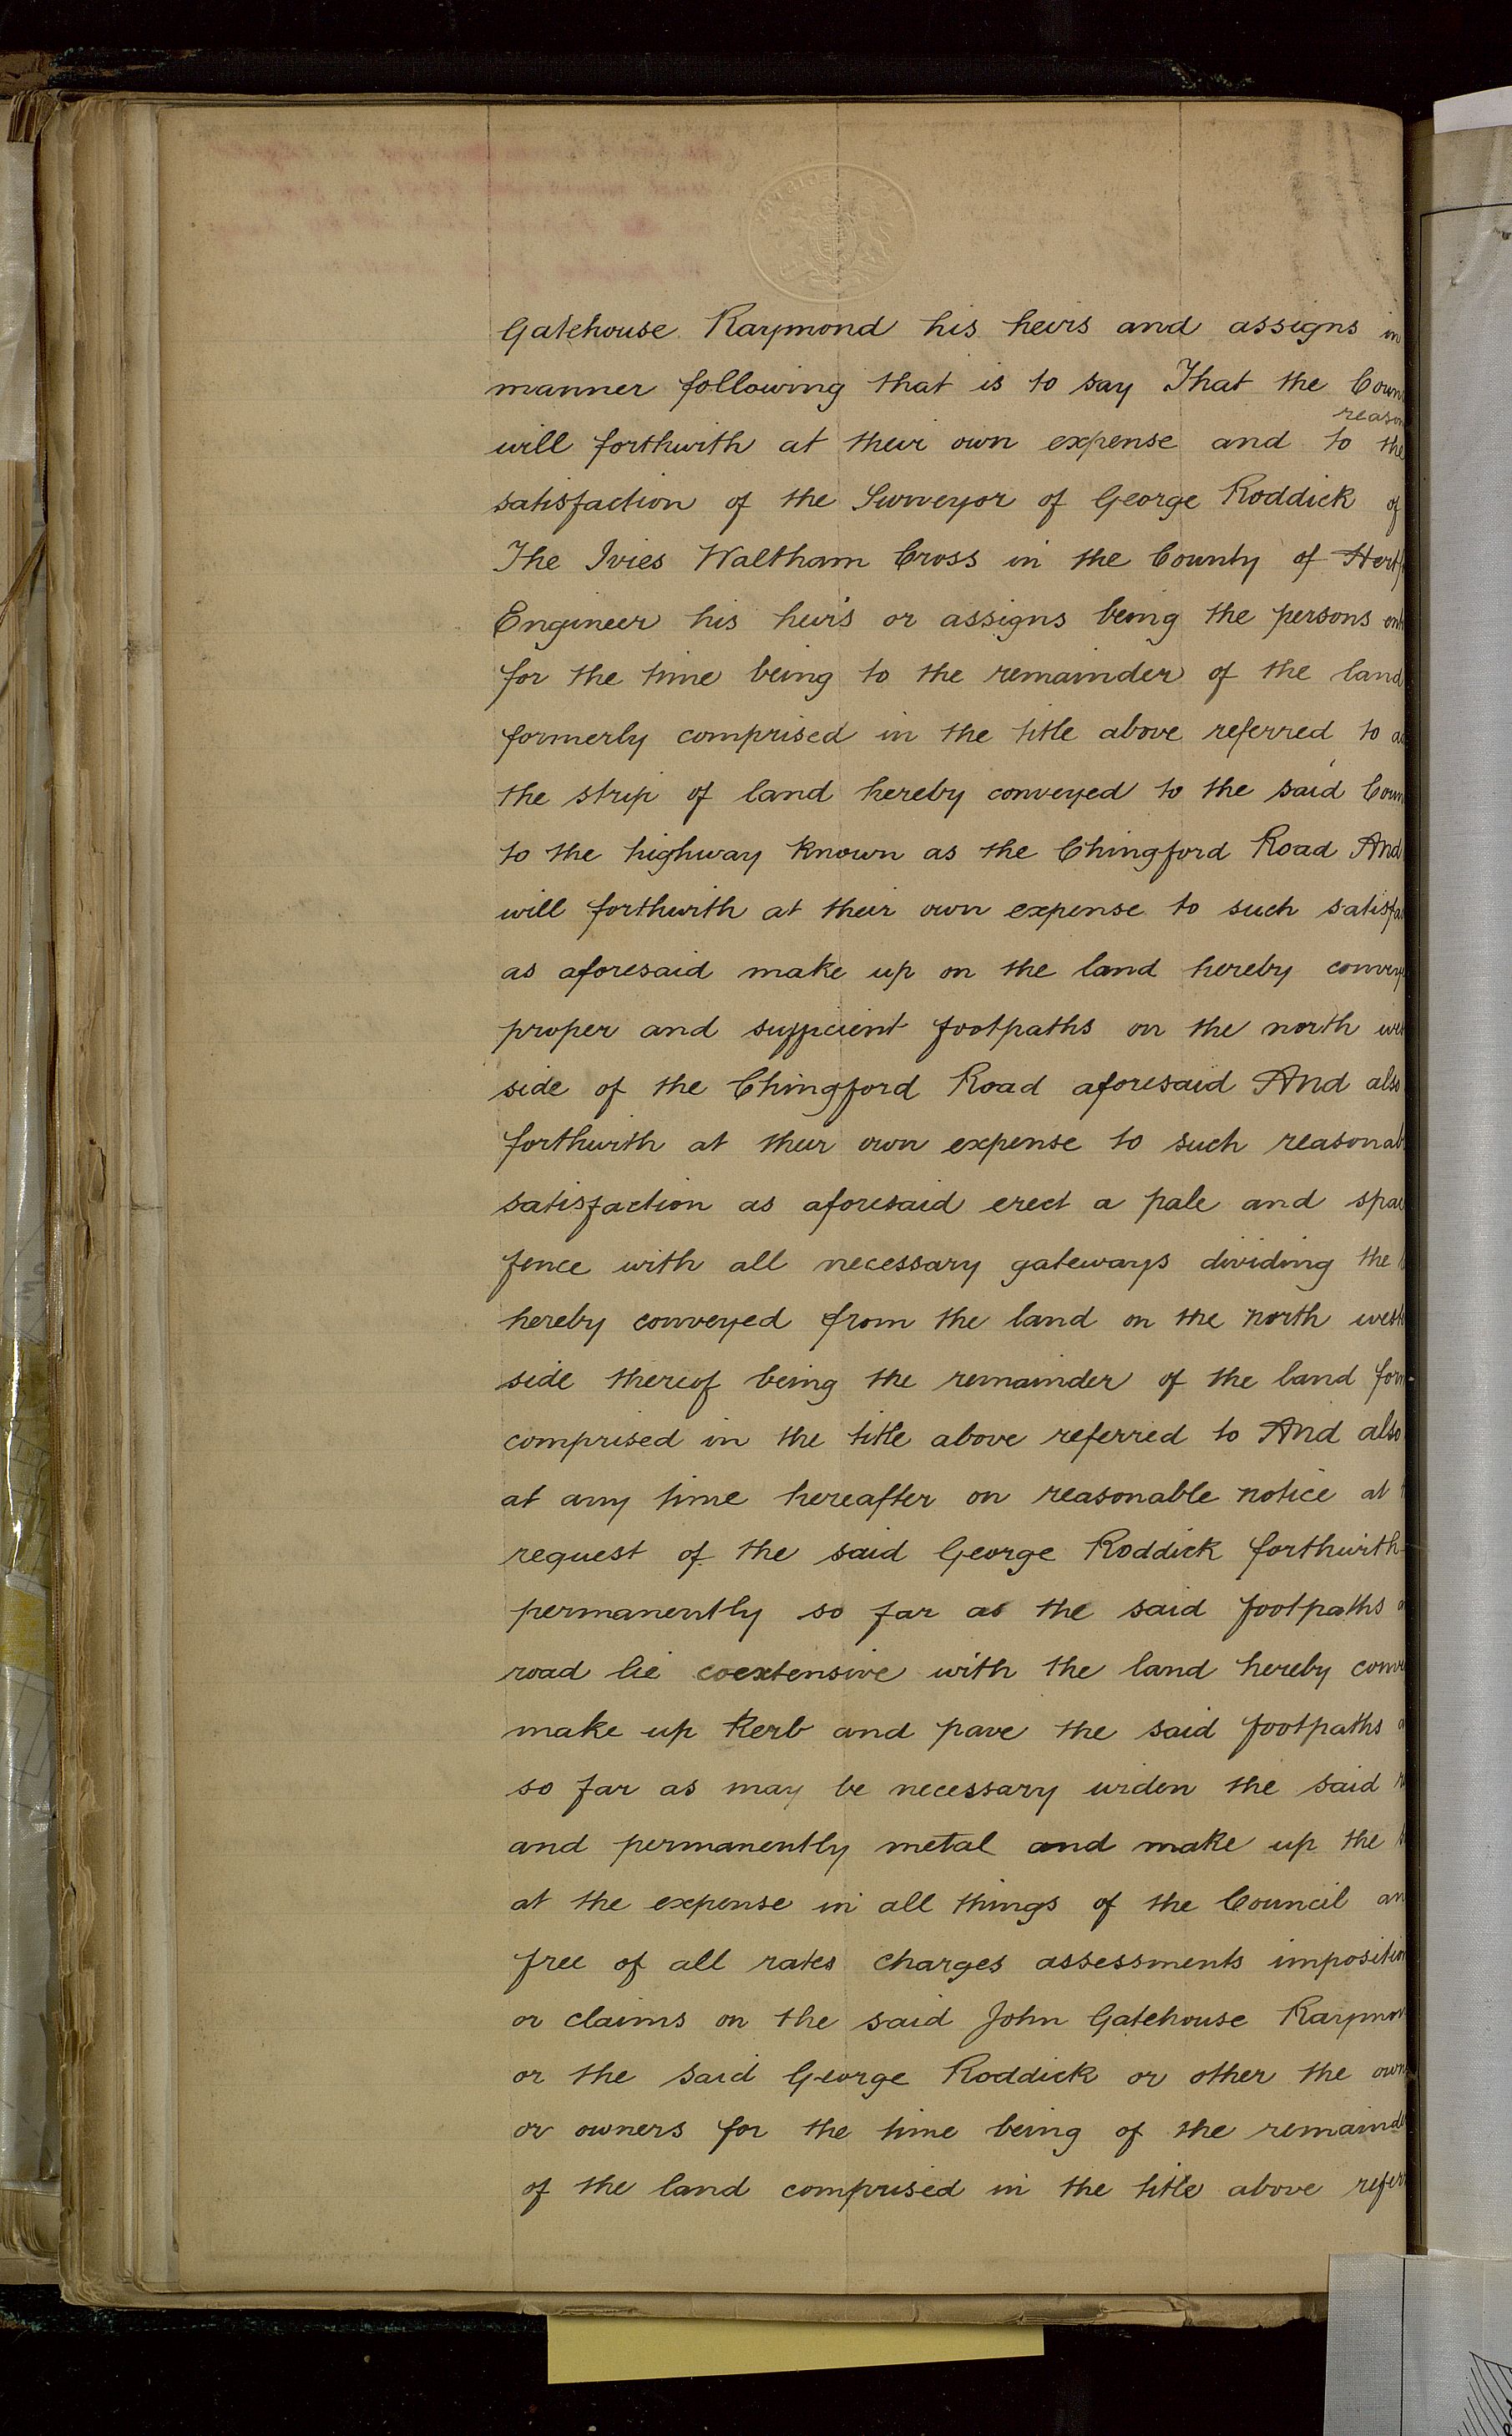 Gatehouse Raymond his heirs and assigns in
manner following that is to say That the Coun
reason
will forthwith at their own expense and to the
satisfaction of the Surveyor of George Roddick of
The Ivies Waltham Cross in the County of Hertf
Engineer his heirs or assigns being the persons ent
for the time being to the remainder of the land
formerly comprised in the title above referred to
the strip of land hereby conveyed to the said Coun
to the highway known as the Chingford Road And
will forthwith at their own expense to such satisfa
as aforesaid make up on the land hereby convey
proper and sufficient footpaths on the north
side of the Chingford Road aforesaid And also
forthwith at their own expense to such reasonab
satisfaction as aforesaid erect a pale and spa
fence with all necessary gateways dividing the
hereby conveyed from the land on the north west
side thereof being the remainder of the land form
comprised in the title above referred to And also
at any time hereafter on reasonable notice at
request of the said George Roddick forthwith
permanently so far as the said footpaths
road lie coextensive with the land hereby conve
make up kerb and pave the said footpaths
so far as may be necessary widen the said
and permanently metal and make up the
at the expense in all things of the Council an
free of all rates charges assessments imposition
or claims on the said John Gatehouse Raymon
or the said George Roddick or other the own
or owners for the time being of the remainde
of the land comprised in the title above referr